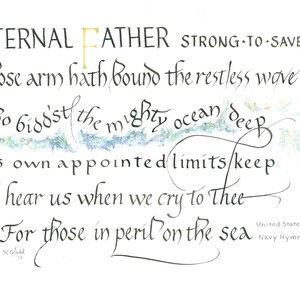 TERNAL FATHER STRONG·TO·SAVE
ose arm hath bound the restless wave
o bidd'st the mighty ocean deep
s own appointed limits keep
hear us when we cry to thee
For those in peril on the sea
United State
Navy Hymn